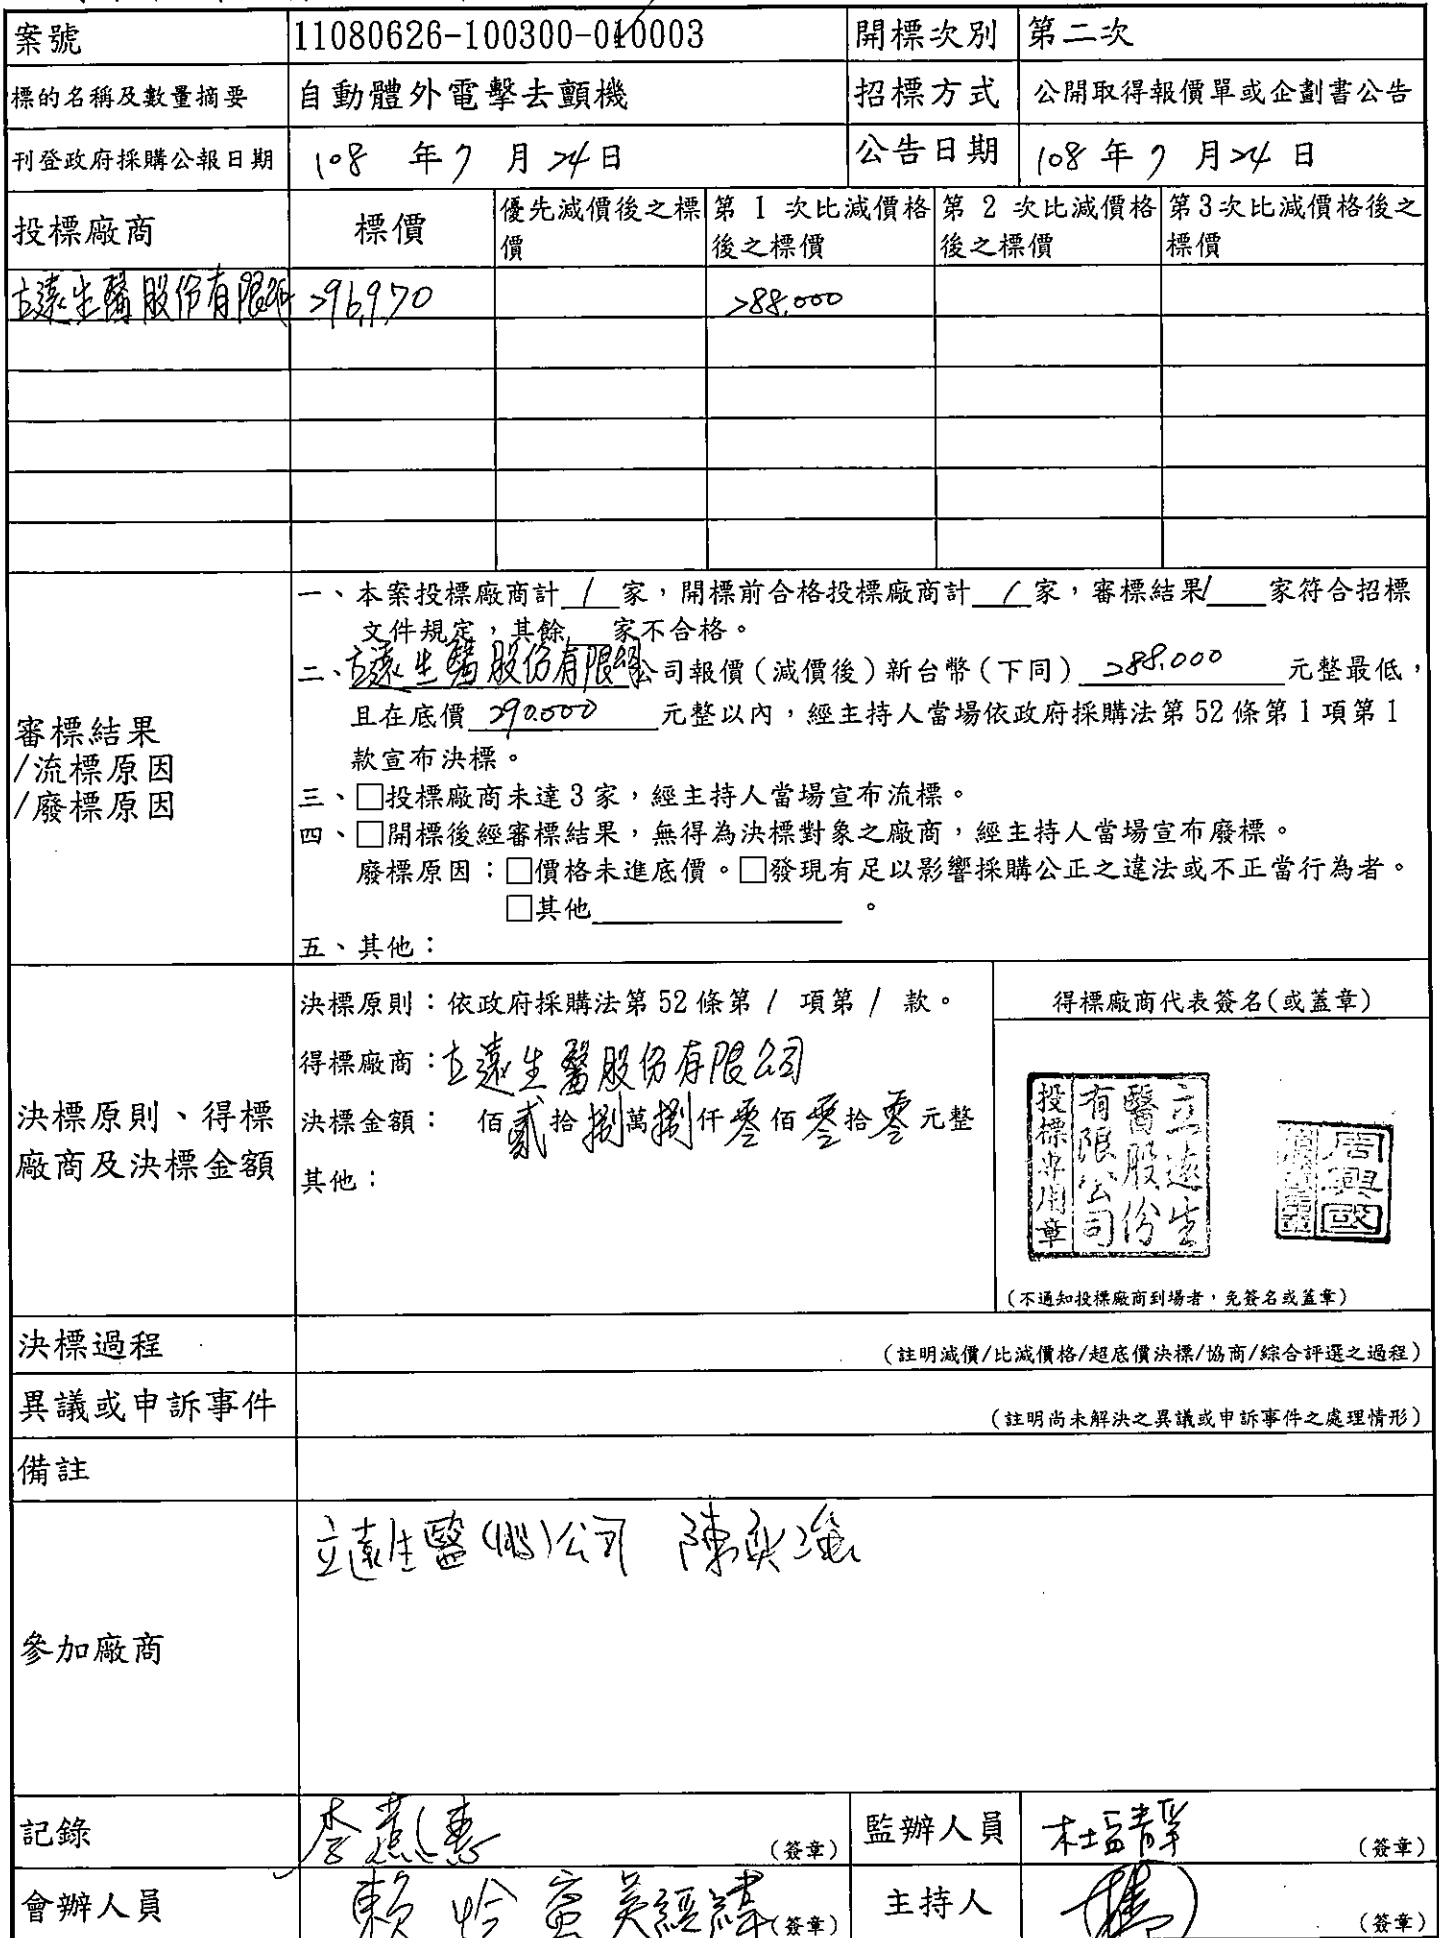 案號 11080626-100300-010003 開標次別 第二次
標的名稱及數量摘要 自動體外電擊去顫機 招標方式 公開取得報價單或企劃書公告
刊登政府採購公報日期 108 年 7 月 24 日 公告日期 108 年 7 月 24 日
投標廠商 標價 優先減價後之標價 第 1 次比減價格後之標價 第 2 次比減價格後之標價 第3次比減價格後之標價
立遠生醫股份有限公司 296,970 288,000
審標結果
/流標原因
/廢標原因
一、本案投標廠商計 1 家，開標前合格投標廠商計 1 家，審標結果 1 家符合招標
文件規定，其餘 家不合格。
二、立遠生醫股份有限公司報價（減價後）新台幣（下同） 288,000 元整最低，
且在底價 290,000 元整以內，經主持人當場依政府採購法第 52 條第 1 項第 1
款宣布決標。
三、□投標廠商未達 3 家，經主持人當場宣布流標。
四、□開標後經審標結果，無得為決標對象之廠商，經主持人當場宣布廢標。
廢標原因：□價格未進底價。□發現有足以影響採購公正之違法或不正當行為者。
□其他 。
五、其他：
決標原則、得標
廠商及決標金額
決標原則：依政府採購法第 52 條第 1 項第 1 款。
得標廠商：立遠生醫股份有限公司
決標金額： 佰貳拾捌萬捌仟零佰零拾零元整
其他：
得標廠商代表簽名(或蓋章)
立遠生
醫股份
有限公司
投標專用章
周興國
（不通知投標廠商到場者，免簽名或蓋章）
決標過程 （註明減價/比減價格/超底價決標/協商/綜合評選之過程）
異議或申訴事件 （註明尚未解決之異議或申訴事件之處理情形）
備註
參加廠商 立遠生醫(股)公司 陳
記錄 李蕙 （簽章） 監辦人員 杜 （簽章）
會辦人員 賴怡 經緯 （簽章） 主持人 （簽章）